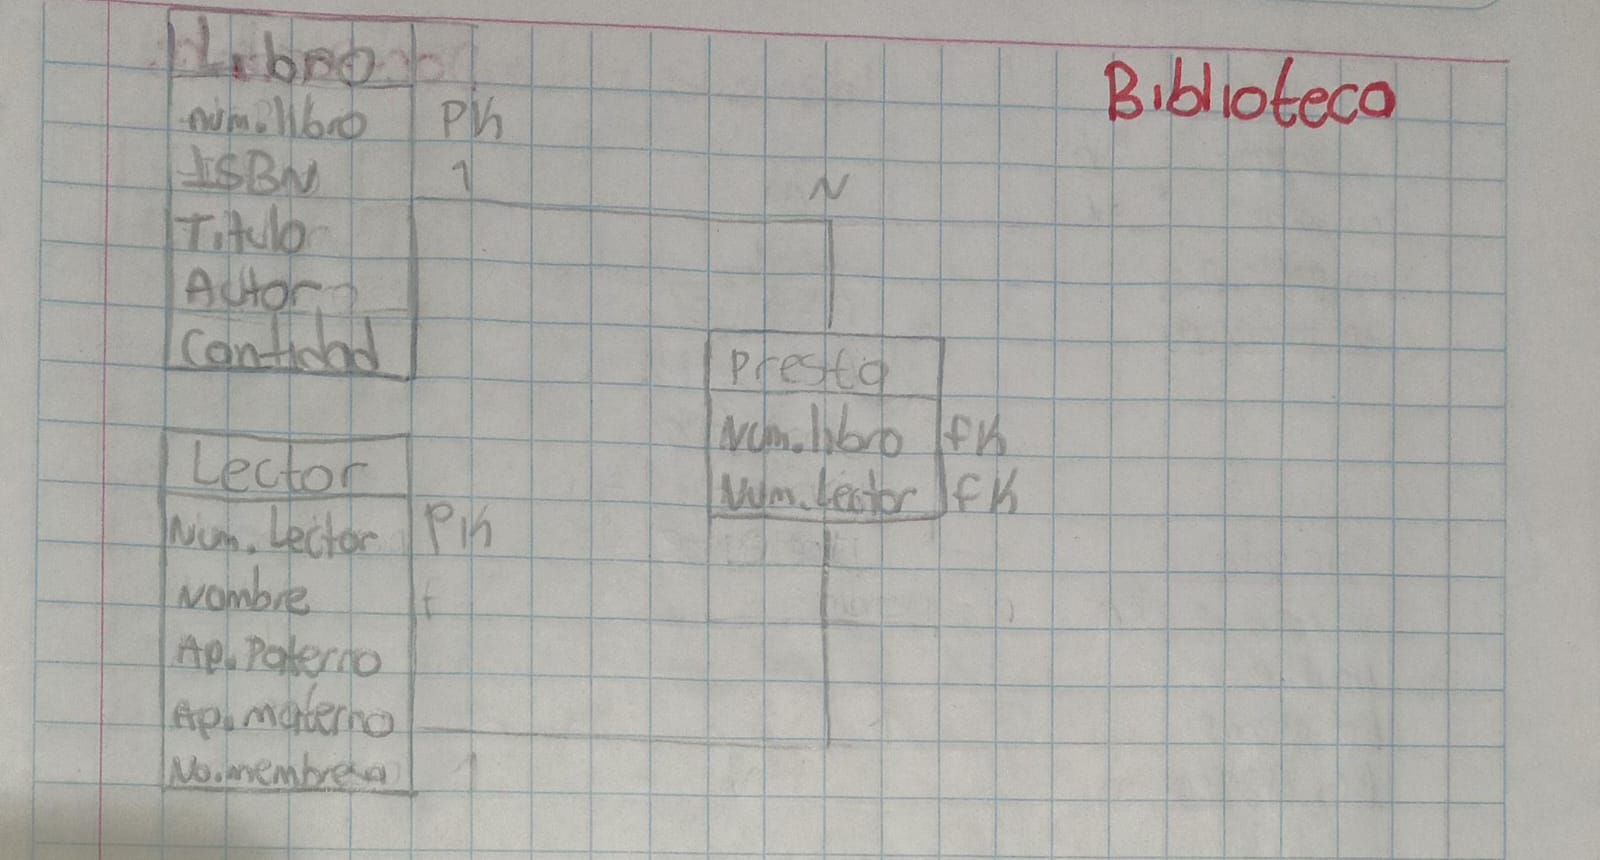 Biblioteca
Libro
núm.libro PK
ISBN 1
Titulo
Autor
Cantidad
N
Presta
Num.libro FK
Num.Lector FK
Lector
Num.Lector PK
Nombre
Ap.Paterno
Ap.materno
No.membresia 1